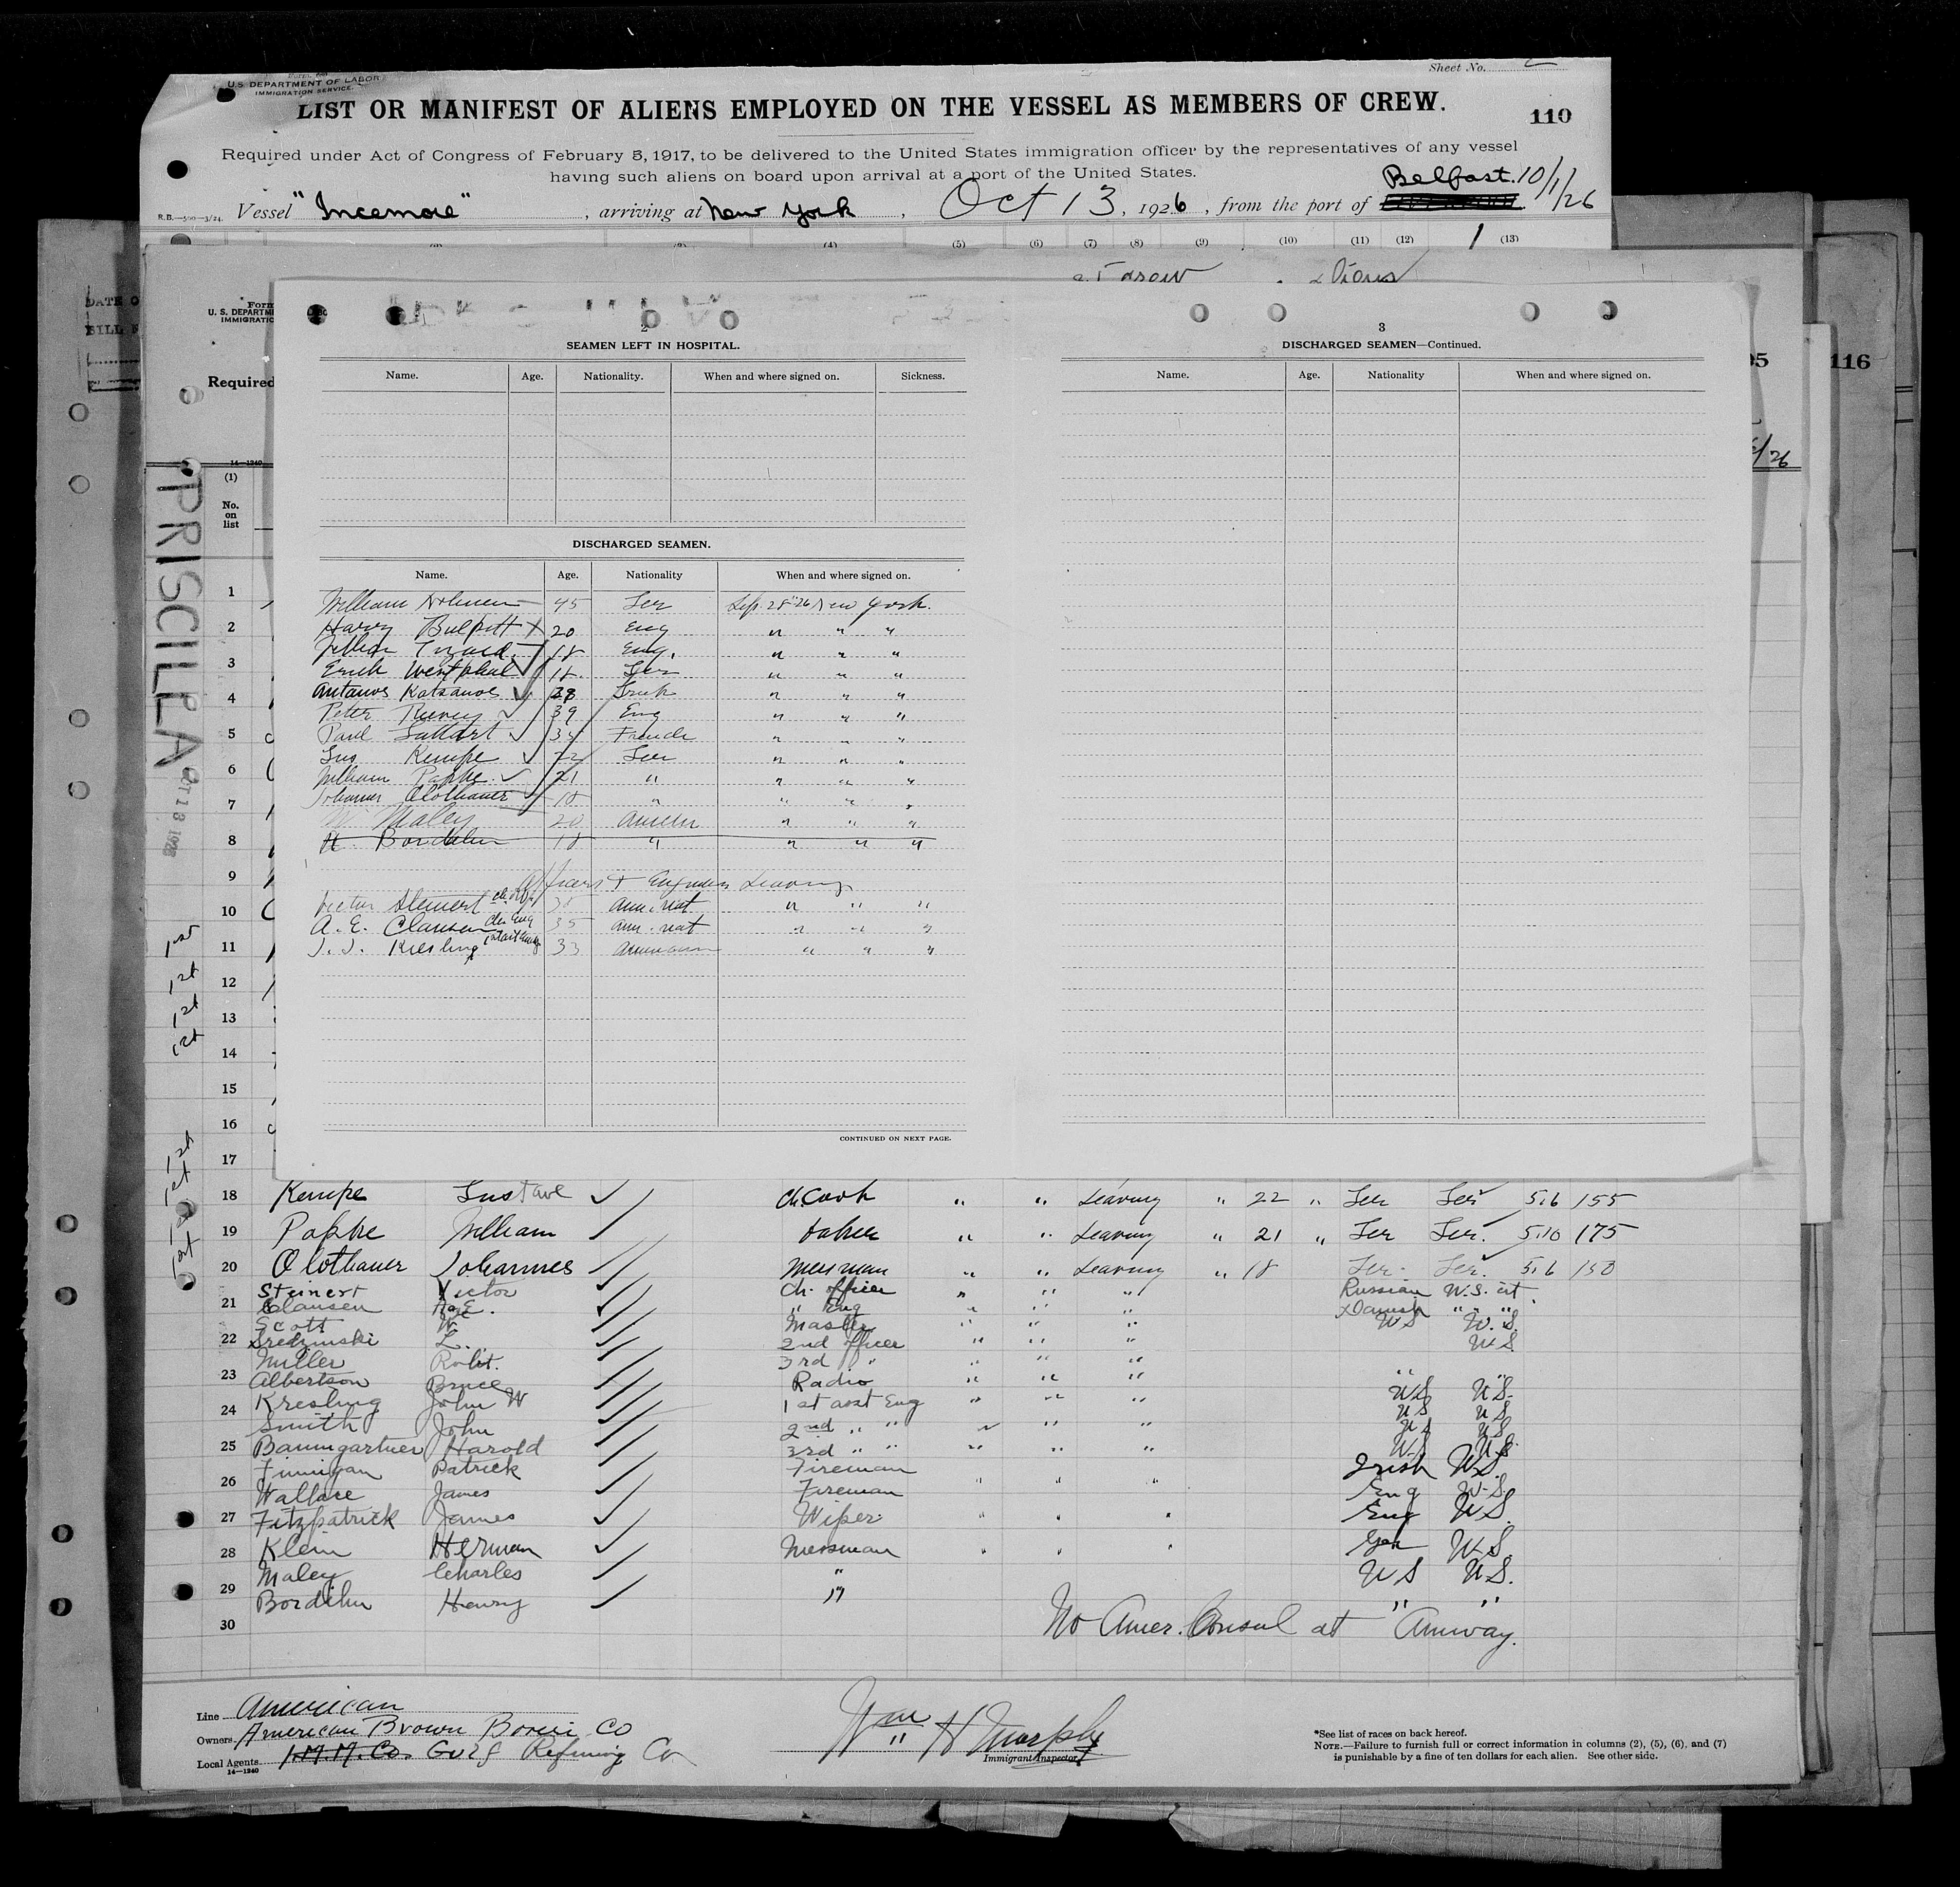 Sheet No. 2
U.S. DEPARTMENT OF LABOR
IMMIGRATION SERVICE.
LIST OR MANIFEST OF ALIENS EMPLOYED ON THE VESSEL AS MEMBERS OF CREW.
110
Required under Act of Congress of February 5, 1917, to be delivered to the United States immigration officer by the representatives of any vessel
having such aliens on board upon arrival at a port of the United States.
Belfast. 10/1/26
R.B.—500—3/24. Vessel "Incemore", arriving at New York, Oct 13, 1926, from the port of
(4) (5) (6) (7) (8) (9) (10) (11) (12) 1 (13)
DATE O
Form
U. S. DEPARTM
IMMIGRATIO
Required
116
14—1240
(1)
No.
on
list
PRISCILLA
OCT 13 1926
2
SEAMEN LEFT IN HOSPITAL.
Name. Age. Nationality. When and where signed on. Sickness.
DISCHARGED SEAMEN.
Name. Age. Nationality When and where signed on.
William 45 Ger Sep. 28" 26 New York.
Harry Bulpitt 20 Eng " " "
18 Eng. " " "
Erich Westphal 18. Ger " " "
Antanos Katsanos 38 Greek " " "
Peter 39 Eng " " "
Paul French " " "
Gus Kempe 22 Ger " " "
William Papke 21 " " " "
Johannes Olothauer 18 " " " "
W. Maley 20 " " "
H. Bordihn 18 " " " "
Officers & Engineers Leaving
Victor Steinert ch. Off. 35 am. nat " " "
A. E. Clausen ch. Eng 35 am. nat " " "
J. J. Kiesling 33 American " " "
CONTINUED ON NEXT PAGE.
3
DISCHARGED SEAMEN—Continued.
Name. Age. Nationality When and where signed on.
1
2
3
4
5
6
7
8
9
10
11
12
13
14
15
16
17
18 Kempe Gustave Ch. Cook " " Leaving " 22 " Ger Ger 5.6 155
19 Papke William " " Leaving " 21 " Ger Ger. 5.10 175
20 Olothauer Johannes Messman " " Leaving " 18 Ger. Ger. 5.6 150
Steinert Victor Ch. officer " " " Russian U.S. cit
21 Clausen A.E. " Eng " " " Danish " " "
Scott W. Master " " " US U.S.
22 Sredzinski L. 2nd officer " " " U.S.
Miller Robt. 3rd " " " "
23 Albertson Bruce Radio " " " " "
24 Kresling John W 1st asst Eng " " " US US.
Smith John 2nd " " " " " US US
25 Baumgartner Harold 3rd " " " " " US US
Finnigan Patrick Fireman Irish US.
26 Wallace James Fireman " " " Eng U.S.
27 Fitzpatrick James Wiper " " " Eng US.
28 Klein Herman Messman " " " Ger US.
Maley Charles " US US.
29 Bordihn Henry " " "
30 No Amer. Consul at
Line American
Owners American Brown Boveri Co
Local Agents I.M.M. Co. Gulf Refining Co
14—1240
Wm H Murphy
Immigrant Inspector
*See list of races on back hereof.
NOTE.—Failure to furnish full or correct information in columns (2), (5), (6), and (7)
is punishable by a fine of ten dollars for each alien. See other side.